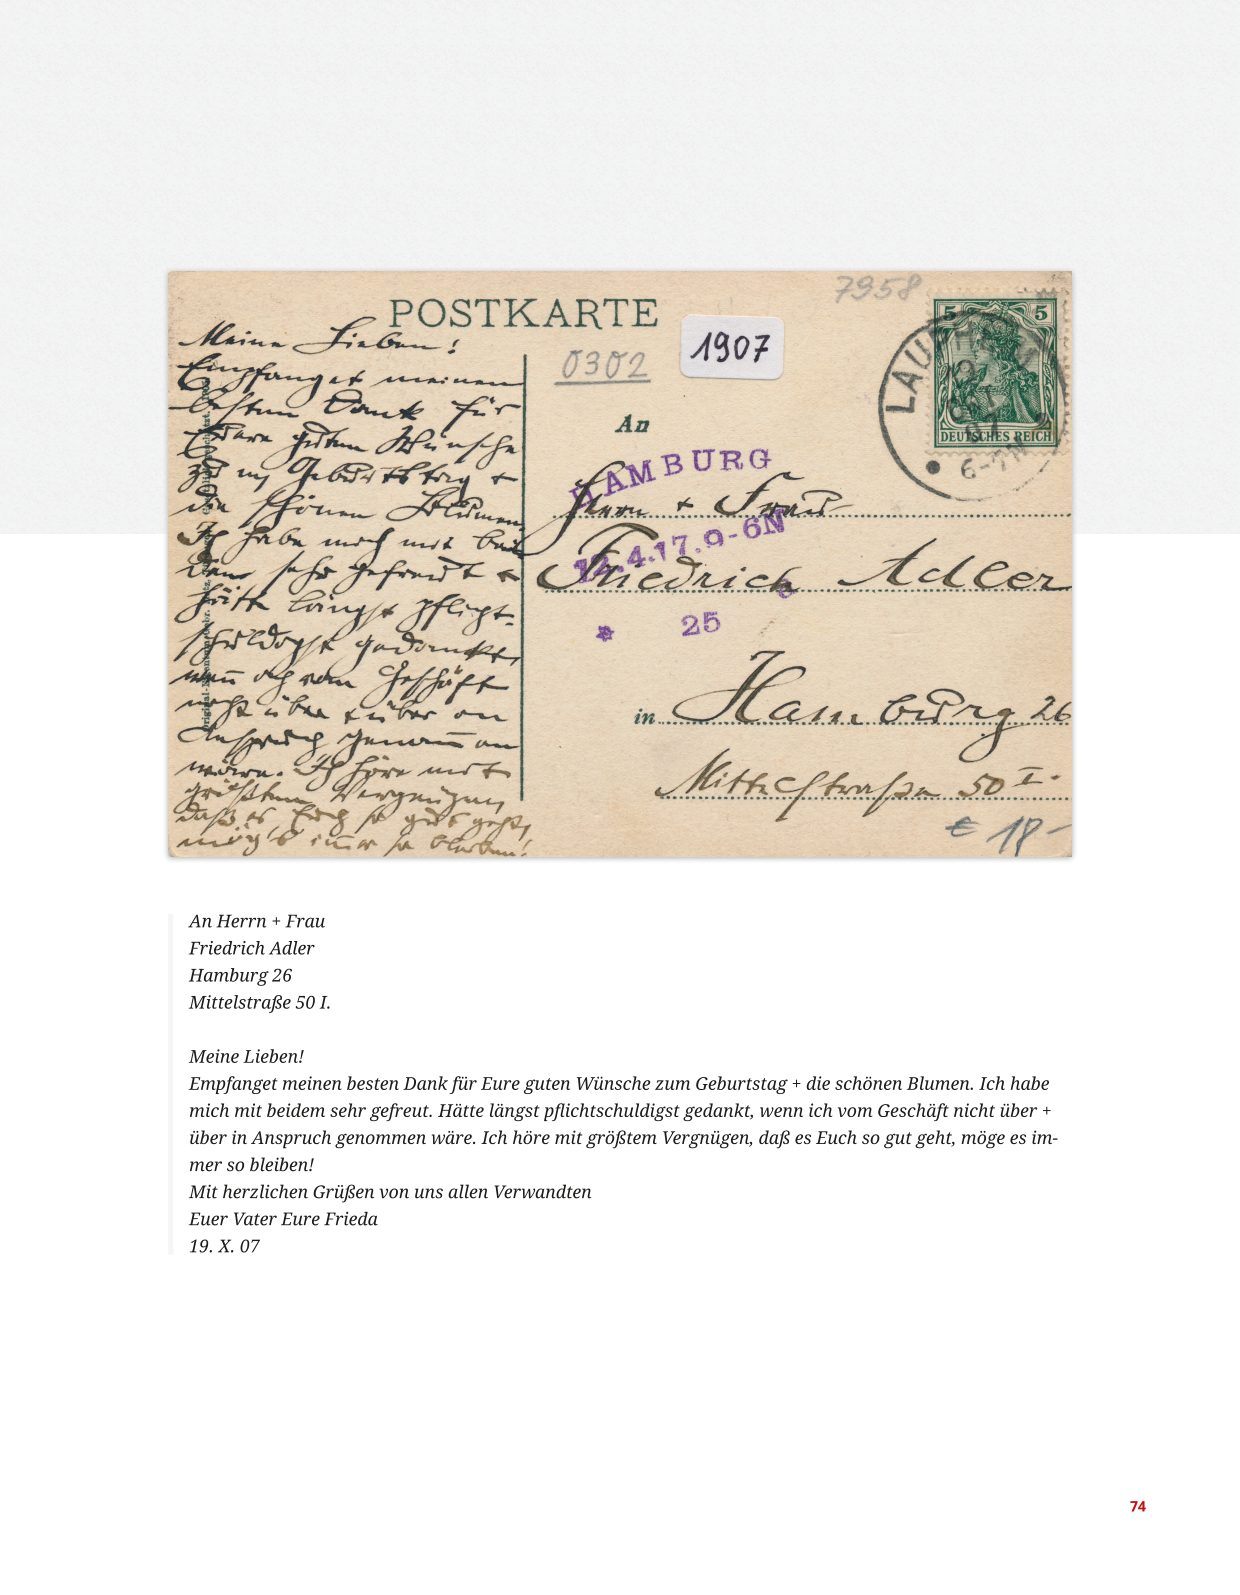 POSTKARTE
7958
0302
1907
5 5
DEUTSCHES REICH
LAUPHEIM
6-7N
An
HAMBURG
12.4.17.9-6N
25
Herrn + Frau
Friedrich Adler
in Hamburg 26
Mittelstraße 50 I.
€ 18-
Meine Lieben!
Empfanget meinen
besten Dank für
Eure guten Wünsche
zum Geburtstag +
die schönen Blumen.
Ich habe mich mit bei-
dem sehr gefreut +
hätte längst pflicht-
schuldigst gedankt,
wenn ich vom Geschäft
nicht über + über in
Anspruch genommen
wäre. Ich höre mit
größtem Vergnügen,
daß es Euch so gut geht,
mög's immer so bleiben!
An Herrn + Frau
Friedrich Adler
Hamburg 26
Mittelstraße 50 I.
Meine Lieben!
Empfanget meinen besten Dank für Eure guten Wünsche zum Geburtstag + die schönen Blumen. Ich habe
mich mit beidem sehr gefreut. Hätte längst pflichtschuldigst gedankt, wenn ich vom Geschäft nicht über +
über in Anspruch genommen wäre. Ich höre mit größtem Vergnügen, daß es Euch so gut geht, möge es im-
mer so bleiben!
Mit herzlichen Grüßen von uns allen Verwandten
Euer Vater Eure Frieda
19. X. 07
74